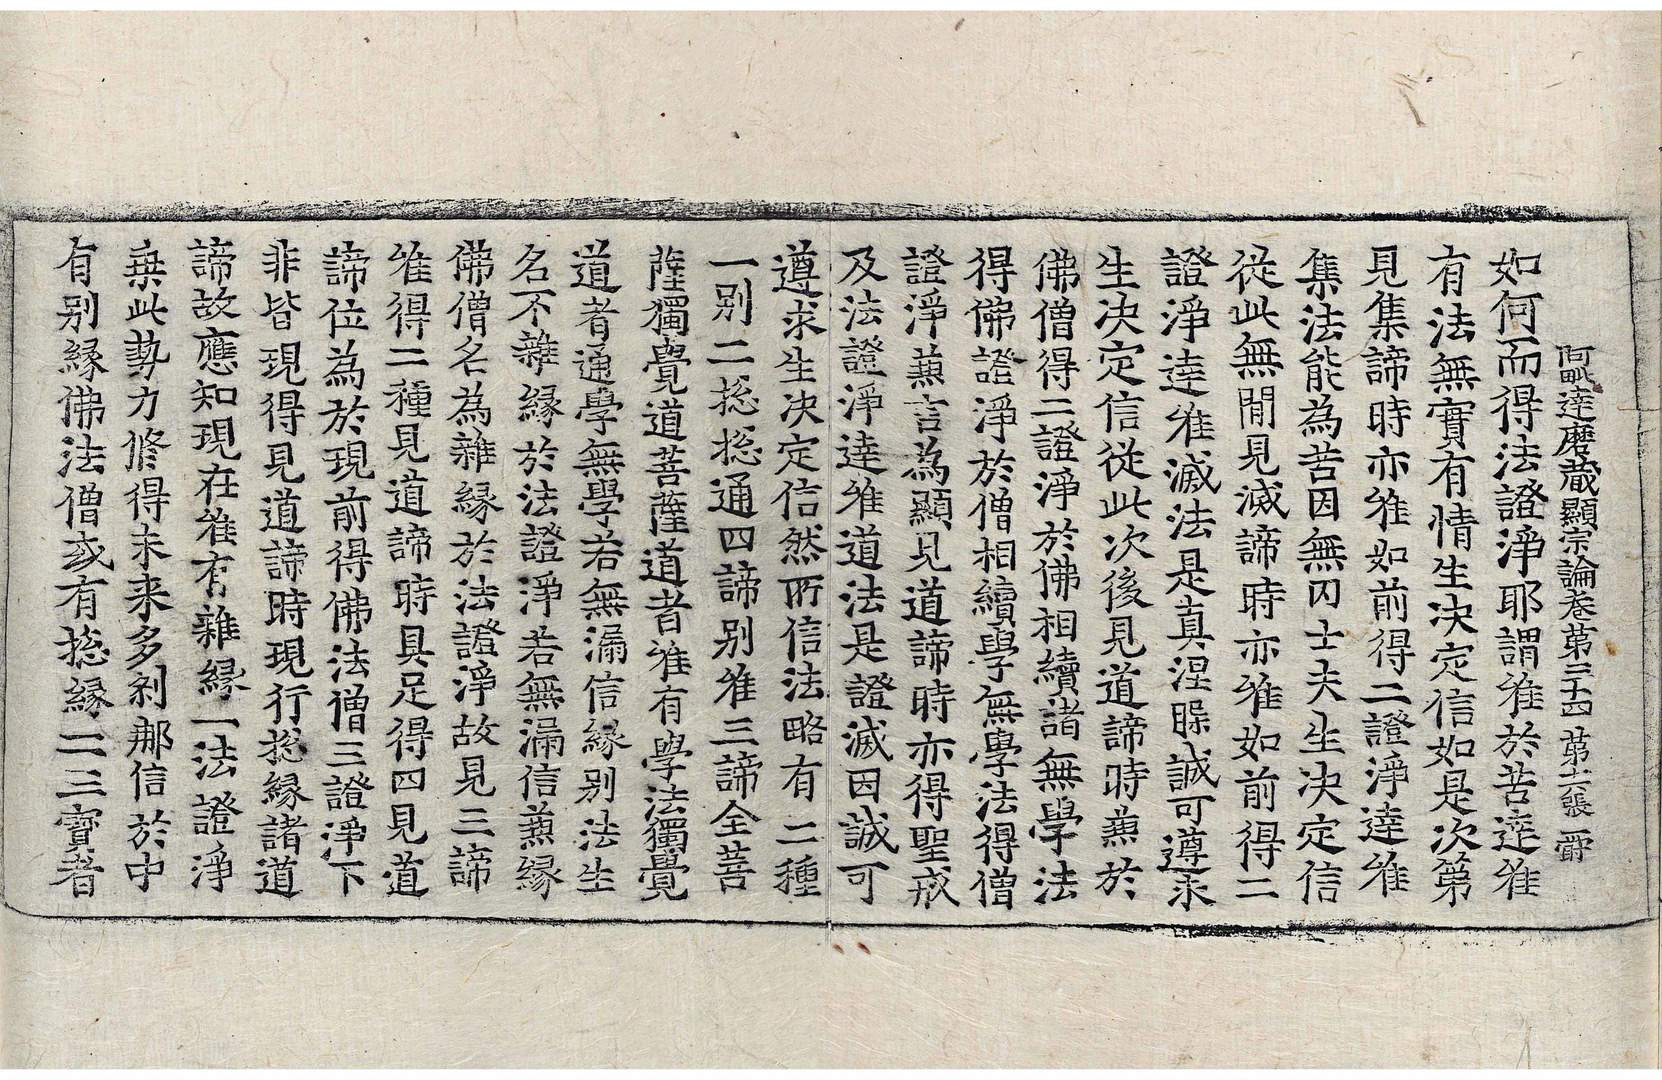 阿毗達磨藏顯宗論卷第三十四 第六張 爵
如何而得法證淨耶謂唯於苦達唯
有法無實有情生決定信如是次第
見集諦時亦唯如前得二證淨達唯
集法能為苦因無內士夫生決定信
從此無間見滅諦時亦唯如前得二
證淨達唯滅法是真涅槃誠可遵求
生決定信從此次後見道諦時兼於
佛僧得二證淨於佛相續諸無學法
得佛證淨於僧相續學無學法得僧
證淨兼言為顯見道諦時亦得聖戒
及法證淨達唯道法是證滅因誠可
遵求生決定信然所信法略有二種
一別二捴捴通四諦別唯三諦全菩
薩獨覺道菩薩道者唯有學法獨覺
道者通學無學若無漏信緣別法生
名不雜緣於法證淨若無漏信兼緣
佛僧名為雜緣於法證淨故見三諦
唯得二種見道諦時具足得四見道
諦位為於現前得佛法僧三證淨下
非皆現得見道諦時現行捴緣諸道
諦故應知現在唯有雜緣一法證淨
乘此勢力修得未來多剎那信於中
有別緣佛法僧或有捴緣二三寶者